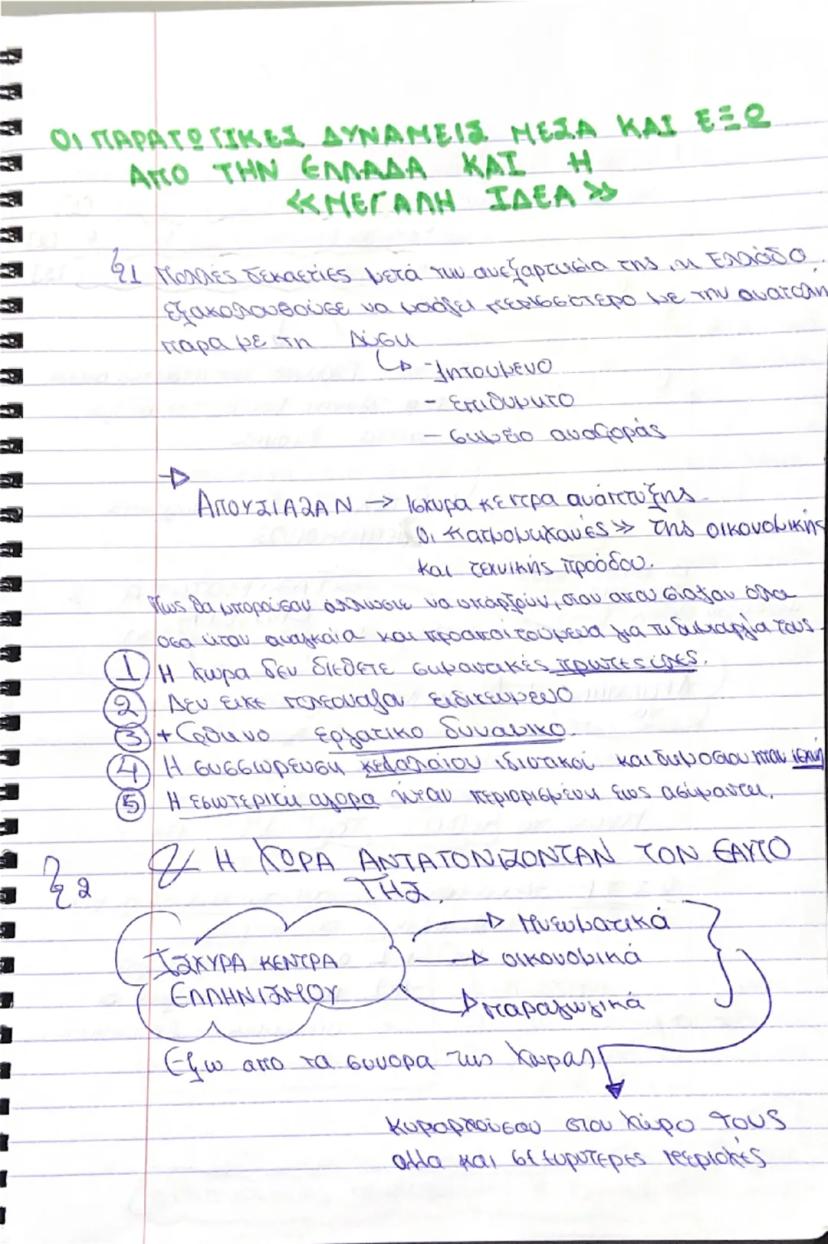 ΟΙ ΠΑΡΑΓΩΓΙΚΕΣ ΔΥΝΑΜΕΙΣ ΜΕΣΑ ΚΑΙ ΕΞΩ
ΑΠΟ ΤΗΝ ΕΛΛΑΔΑ ΚΑΙ Η
«ΜΕΓΑΛΗ ΙΔΕΑ»
§1 Πολλές δεκαετίες μετά την ανεξαρτησία της, η Ελλάδα
εξακολουθούσε να μοιάζει περισσότερο με την ανατολή
παρα με τη Δύση
- Ζητουμενο
- Επιθυμητο
- σημείο αναφοράς
ΑΠΟΥΣΙΑΖΑΝ → Ισχυρα κεντρα ανάπτυξης
Οι «ατμομηχανές» της οικονομικής
και τεχνικής προόδου.
Πως θα μπορούσαν άλλωστε να υπάρξουν, όταν απουσίαζαν όλα
οσα ήταν αναγκαία και προαπαιτούμενα για τη λειτουργία τους
1 Η χωρα δεν διεθετε σημαντικές πρωτες ύλες.
2 Δεν ειχε πλεονάζον ειδικευμένο
3 + φθηνο εργατικο δυναμικο.
4 Η συσσώρευση κεφαλαίου ιδιωτικού και δημοσιου ηταν ισχνή
5 Η εσωτερική αγορα ήταν περιορισμένη εως ασήμαντη.
§2 Η ΧΩΡΑ ΑΝΤΑΓΟΝΙΖΟΝΤΑΝ ΤΟΝ ΕΑΥΤΟ
ΤΗΣ.
ΙΣΧΥΡΑ ΚΕΝΤΡΑ
ΕΛΛΗΝΙΣΜΟΥ
Πνευματικά
οικονομικά
παραγωγικά
Εξω απο τα συνορα της Χωρας
κυριαρχούσαν στον Χώρο τους
αλλα και σε ευρυτερες περιοχές